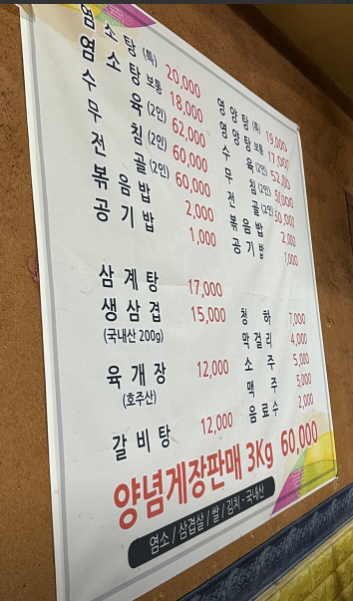 염소탕(특) 20,000
염소탕 보통 18,000
수육(2인) 62,000
무침(2인) 60,000
전골(2인) 60,000
볶음밥 2,000
공기밥 1,000
삼계탕 17,000
생삼겹 15,000
(국내산 200g)
육개장 12,000
(호주산)
갈비탕 12,000
영양탕(특) 19,000
영양탕 보통 17,000
수육(2인) 52,000
무침(2인)
전골(2인)
볶음밥 2,000
공기밥 1,000
청하 7,000
막걸리 4,000
소주 5,000
맥주 5,000
음료수 2,000
양념게장판매 3Kg 60,000
염소 / 삼겹살 / 쌀 / 김치 - 국내산